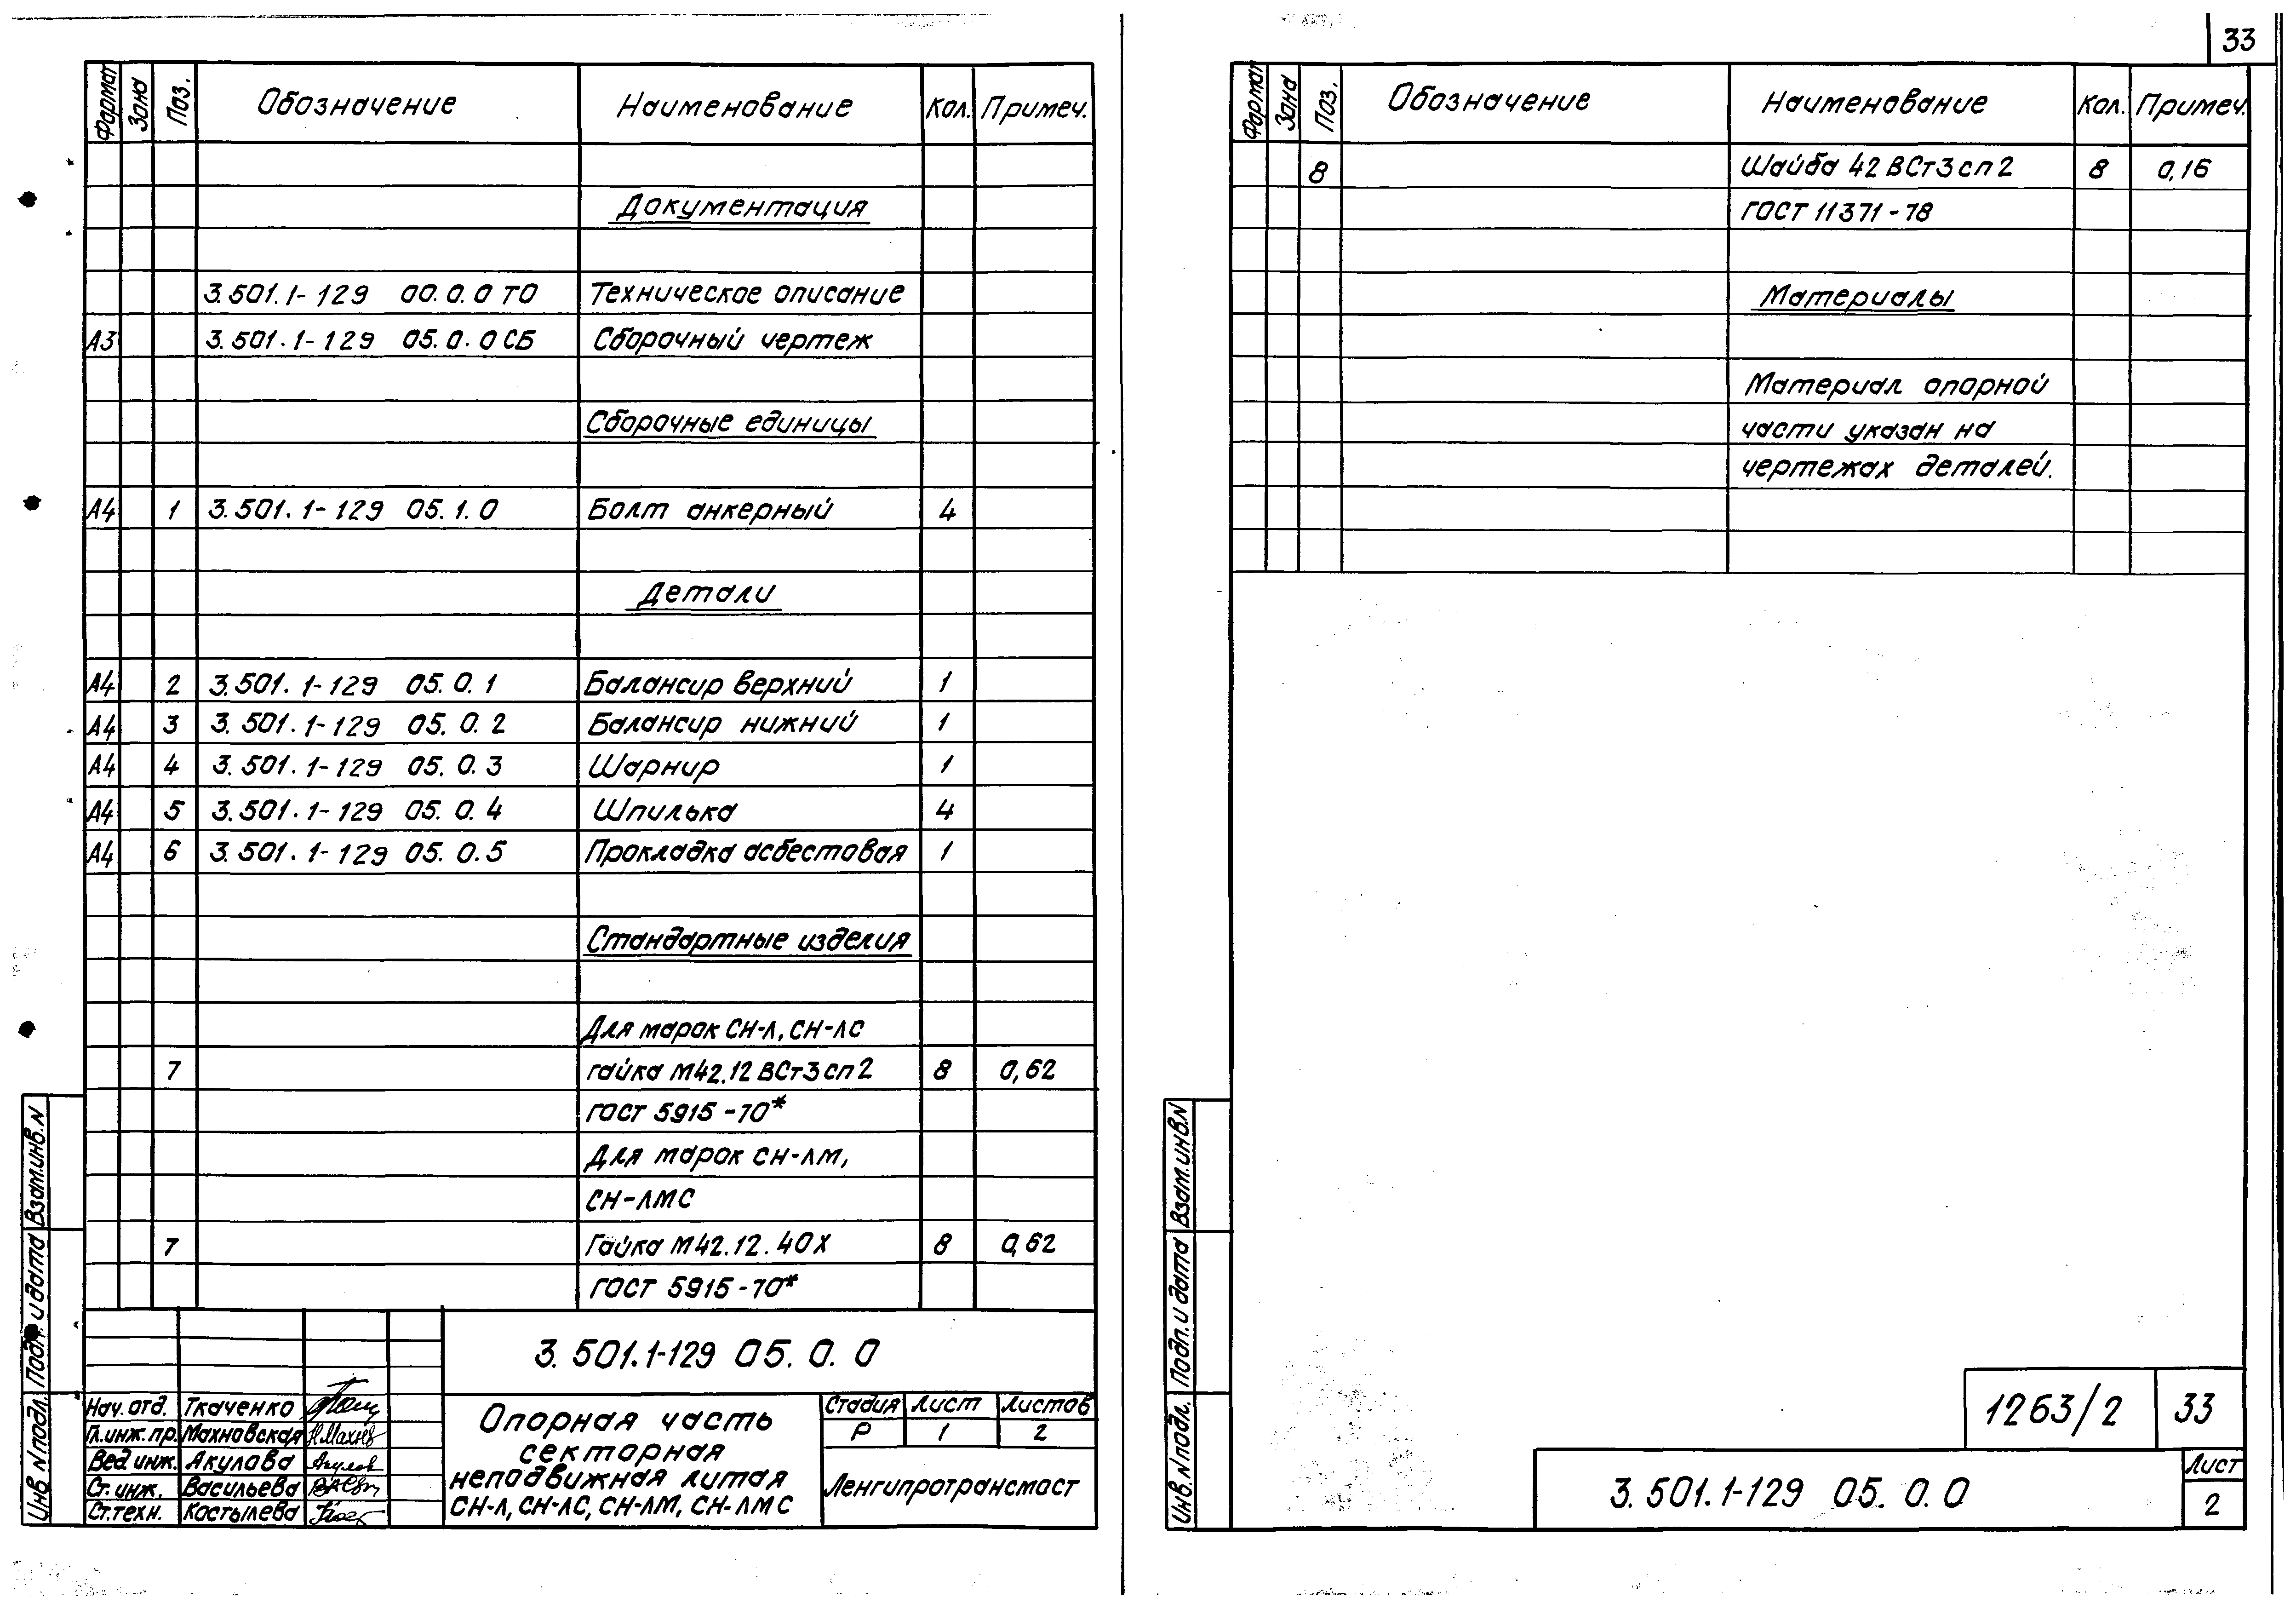 Формат Зона Поз. Обозначение Наименование Кол. Примеч.
Документация
3.501.1-129 00.0.0 ТО Техническое описание
А3 3.501.1-129 05.0.0 СБ Сборочный чертеж
Сборочные единицы
А4 1 3.501.1-129 05.1.0 Болт анкерный 4
Детали
А4 2 3.501.1-129 05.0.1 Балансир верхний 1
А4 3 3.501.1-129 05.0.2 Балансир нижний 1
А4 4 3.501.1-129 05.0.3 Шарнир 1
А4 5 3.501.1-129 05.0.4 Шпилька 4
А4 6 3.501.1-129 05.0.5 Прокладка асбестовая 1
Стандартные изделия
Для марок СН-Л, СН-ЛС
7 гайка М42.12 ВСт3сп2 8 0,62
ГОСТ 5915-70*
Для марок СН-ЛМ,
СН-ЛМС
7 Гайка М42.12.40Х 8 0,62
ГОСТ 5915-70*
3.501.1-129 05.0.0
Нач. отд. Ткаченко
Гл.инж.пр. Махновская
Вед.инж. Акулова Акулов
Ст.инж. Васильева
Ст.техн. Костылева
Опорная часть
секторная
неподвижная литая
СН-Л, СН-ЛС, СН-ЛМ, СН-ЛМС
Стадия Лист Листов
Р 1 2
Ленгипротрансмост
Инв.N подл. Подп. и дата Взам.инв.N
33
Формат Зона Поз. Обозначение Наименование Кол. Примеч.
8 Шайба 42 ВСт3сп2 8 0,16
ГОСТ 11371-78
Материалы
Материал опорной
части указан на
чертежах деталей.
Инв.N подл. Подп. и дата Взам.инв.N
1263/2 33
3.501.1-129 05.0.0
Лист
2